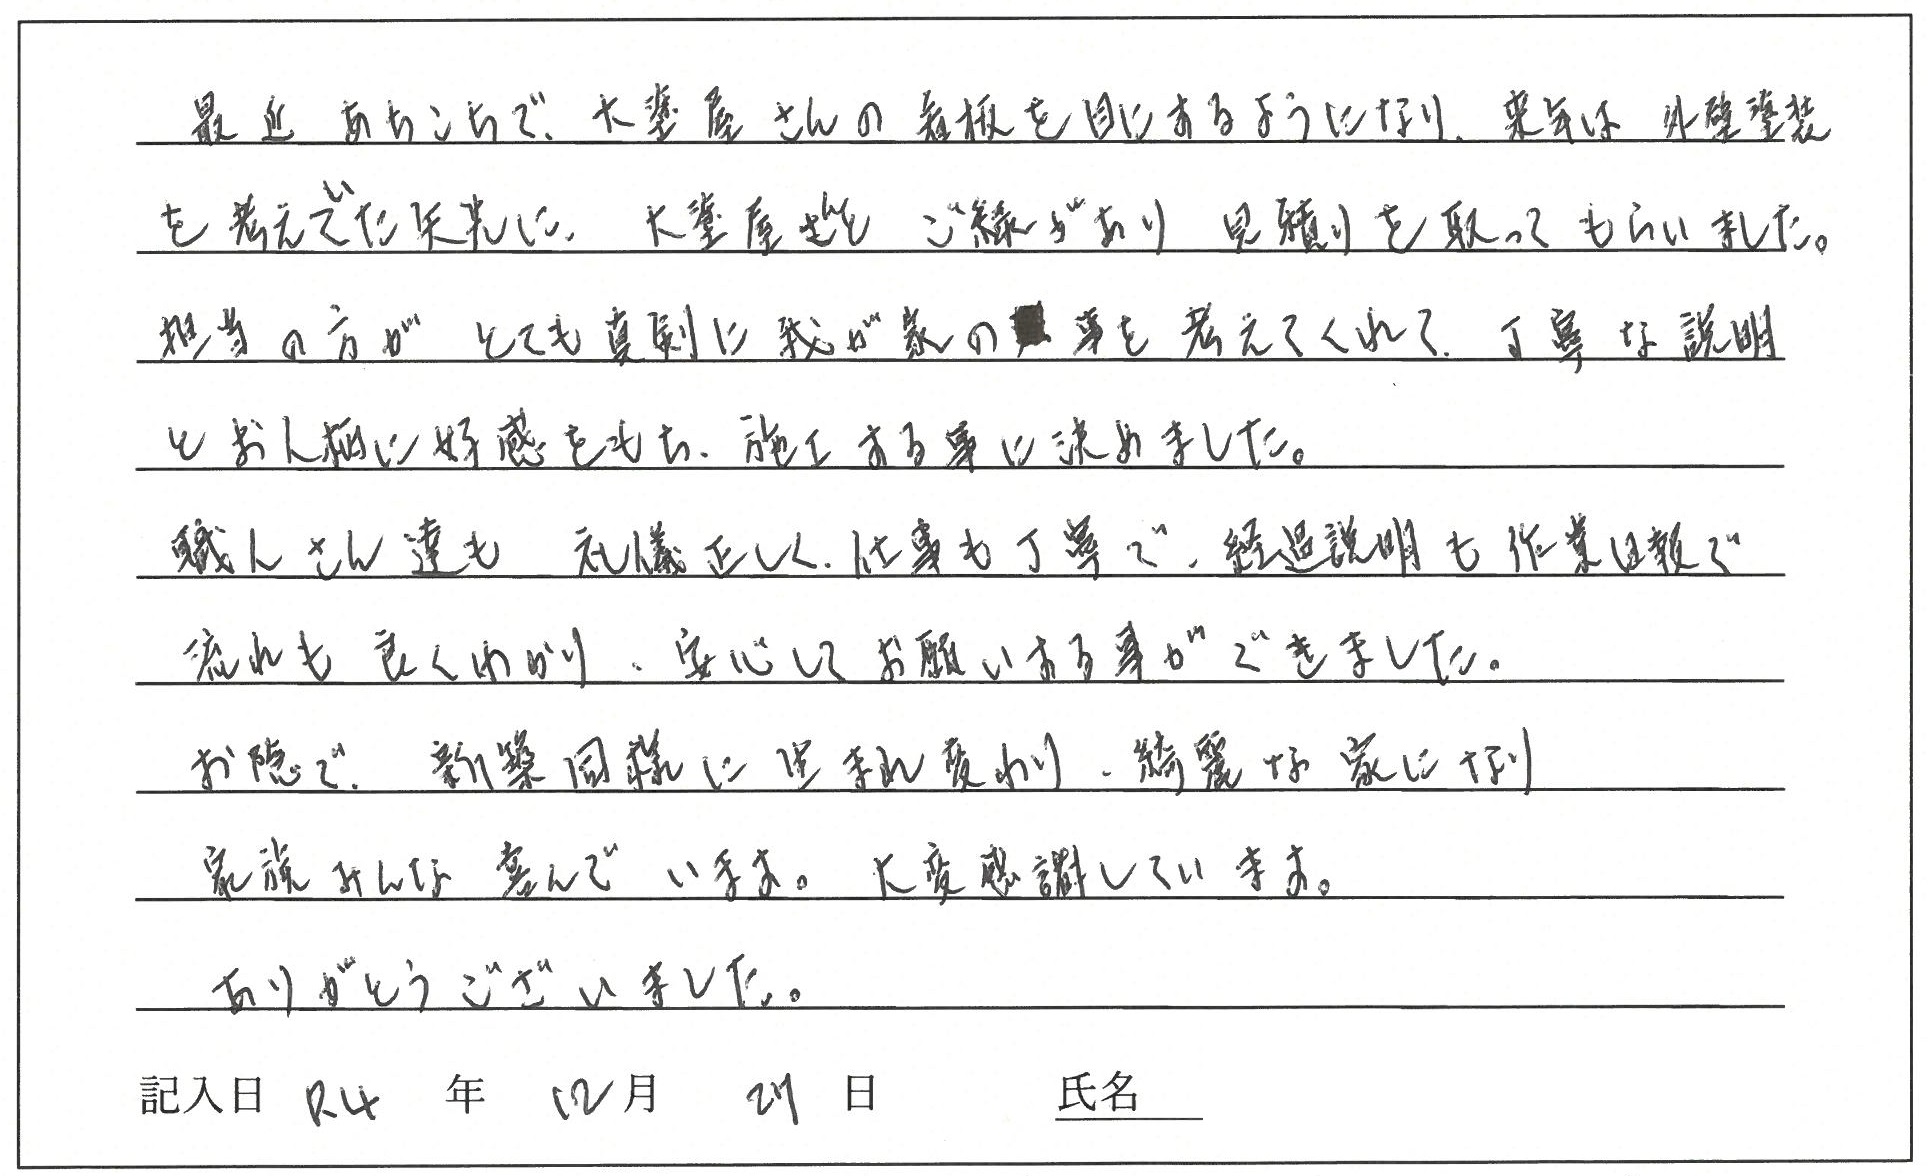 最近あちこちで、大塗屋さんの看板を目にするようになり、来年は外壁塗装
を考えていた矢先に、大塗屋さんとご縁があり見積りを取ってもらいました。
担当の方がとても真剣に我が家の事を考えてくれて、丁寧な説明
とお人柄に好感をもち、施工する事に決めました。
職人さん達も礼儀正しく、仕事も丁寧で、経過説明も作業日報で
流れも良くわかり、安心してお願いする事ができました。
お陰で、新築同様に生まれ変わり、綺麗な家になり
家族みんな喜んでいます。大変感謝しています。
ありがとうございました。
記入日 R4 年 12 月 27 日 氏名